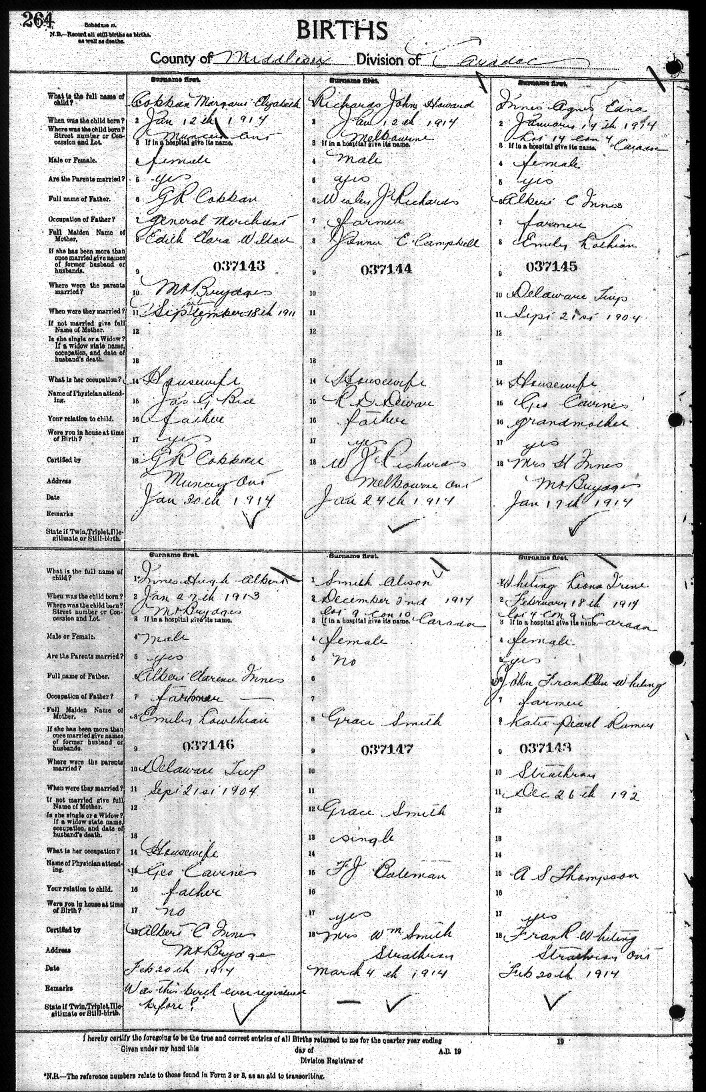 264
Schedule A.
N.B.—Record all still-births as births, as well as deaths.
BIRTHS
County of Middlesex Division of Caradoc
Surname first. Surname first. Surname first.
What is the full name of child? 1 Cobban Margaret Elizabeth 1 Richards John Howard 1 Innes Agnes Edna
When was the child born? 2 Jan 12th 1914 2 Jan 12th 1914 2 January 14th 1914
Where was the child born? Street number or Concession and Lot. Muncey Ont Melbourne Lot 14 Con 4 Caradoc
3 If in a hospital give its name. 3 If in a hospital give its name. 3 If in a hospital give its name.
Male or Female. 4 female 4 male 4 female
Are the Parents married? 5 yes 5 yes 5 yes
Full name of Father. 6 G R Cobban 6 Wesley J Richards 6 Albert C Innes
Occupation of Father? 7 General Merchant 7 farmer 7 farmer
Full Maiden Name of Mother. 8 Edith Clara Wilson 8 C Campbell 8 Emily Lothian
If she has been more than once married give names of former husband or husbands. 9 037143 9 037144 9 037145
Where were the parents married? 10 Mt Brydges 10 10 Delaware Twp
When were they married? 11 September 18th 1911 11 11 Sept 21st 1904
If not married give full Name of Mother. 12 12 12
Is she single or a Widow? If a widow state name, occupation, and date of husband's death. 13 13 13
What is her occupation? 14 Housewife 14 Housewife 14 Housewife
Name of Physician attending. 15 Jas G Bice 15 R D Dewar 15 Geo Cavines
Your relation to child. 16 father 16 father 16 grandmother
Were you in house at time of Birth? 17 yes 17 yes 17 yes
Certified by 18 G R Cobban 18 W J Richards 18 Mrs H Innes
Address Muncey Ont Melbourne Ont Mt Brydges
Date Jan 30th 1914 Jan 24th 1914 Jan 17th 1914
Remarks
State if Twin, Triplet, Illegitimate or Still-birth.
Surname first. Surname first. Surname first.
What is the full name of child? 1 Innes Hugh Albert 1 Smith Alison 1 Whiting Leona Irene
When was the child born? 2 Jan 27th 1913 2 December 2nd 1914 2 February 18th 1914
Where was the child born? Street number or Concession and Lot. Mt Brydges Lot 9 Con 10 Caradoc Lot 4 Con 9 Caradoc
3 If in a hospital give its name. 3 If in a hospital give its name. 3 If in a hospital give its name.
Male or Female. 4 male 4 female 4 female
Are the Parents married? 5 yes 5 no 5 yes
Full name of Father. 6 Albert Clarence Innes 6 6 John Franklin Whiting
Occupation of Father? 7 farmer 7 7 farmer
Full Maiden Name of Mother. 8 Emily Lowthian 8 Grace Smith 8 Katie Pearl
If she has been more than once married give names of former husband or husbands. 9 037146 9 037147 9 037148
Where were the parents married? 10 Delaware Twp 10 10 Strathroy
When were they married? 11 Sept 21st 1904 11 11 Dec 26th 192
If not married give full Name of Mother. 12 12 Grace Smith 12
Is she single or a Widow? If a widow state name, occupation, and date of husband's death. 13 13 single 13
What is her occupation? 14 Housewife 14 14
Name of Physician attending. 15 Geo Cavines 15 F J Bateman 15 A S Thompson
Your relation to child. 16 father 16 16
Were you in house at time of Birth? 17 no 17 yes 17 yes
Certified by 18 Albert C Innes 18 Mrs Wm Smith 18 Frank Whiting
Address Mt Brydges Strathroy Strathroy Ont
Date Feb 20th 1914 March 4th 1914 Feb 20th 1914
Remarks Was this birth ever registered
State if Twin, Triplet, Illegitimate or Still-birth. before?
I hereby certify the foregoing to be the true and correct entries of all Births returned to me for the quarter year ending 19
Given under my hand this day of A.D. 19
Division Registrar of
*N.B.—The reference numbers relate to those found in Form 2 or 3, as an aid to transcribing.